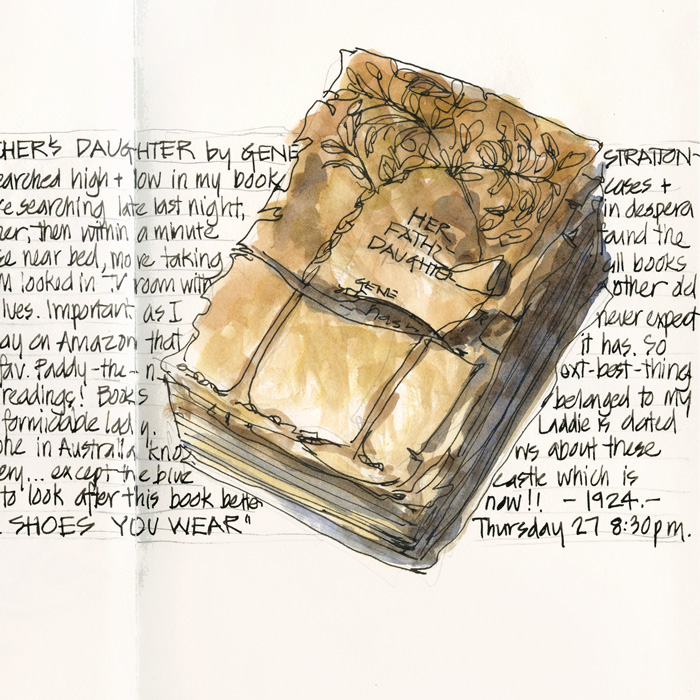 HER'S DAUGHTER by GENE STRATTON-
earched high + low in my book cases +
e searching late last night, in despera
er, then within a minute found the
se near bed, move taking all books
M looked in TV room with other del
lves. Important as I never expect
ay on Amazon that it has. So
fav. Paddy-the-n ext-best-thing
readings! Books belonged to my
formidable lady. Laddie is dated
one in Australia knos ws about these
ery... except the blue castle which is
to look after this book better now!! - 1924.-
SHOES YOU WEAR" Thursday 27 8:30pm.
HER
FATH
DAUGHTE
GENE